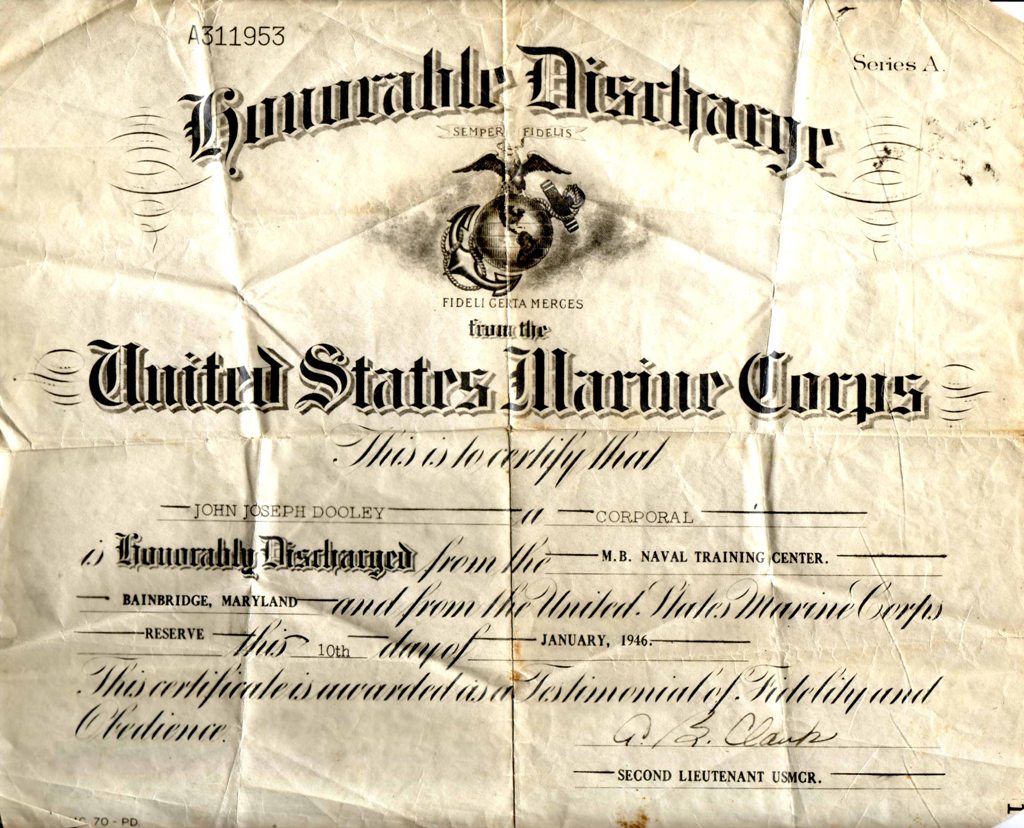 A311953
Series A.
Honorable Discharge
SEMPER FIDELIS
FIDELI CERTA MERCES
from the
United States Marine Corps
This is to certify that
JOHN JOSEPH DOOLEY a CORPORAL
is Honorably Discharged from the M.B. NAVAL TRAINING CENTER.
BAINBRIDGE, MARYLAND and from the United States Marine Corps
RESERVE this 10th day of JANUARY, 1946.
This certificate is awarded as a Testimonial of Fidelity and
Obedience.
SECOND LIEUTENANT USMCR.
70 - PD
1